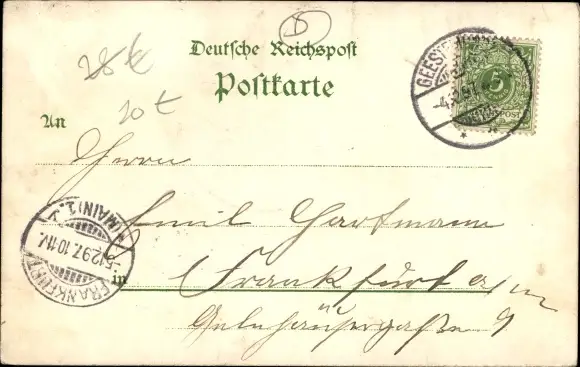 Deutsche Reichspost
Postkarte
An
28 €
20 €
D
5
Herrn
Emil Hartmann
in Frankfurt a/m
Gelnhäusergaße 9
FRANKFURT (MAIN) 1.
5.12.97. 10-11V.